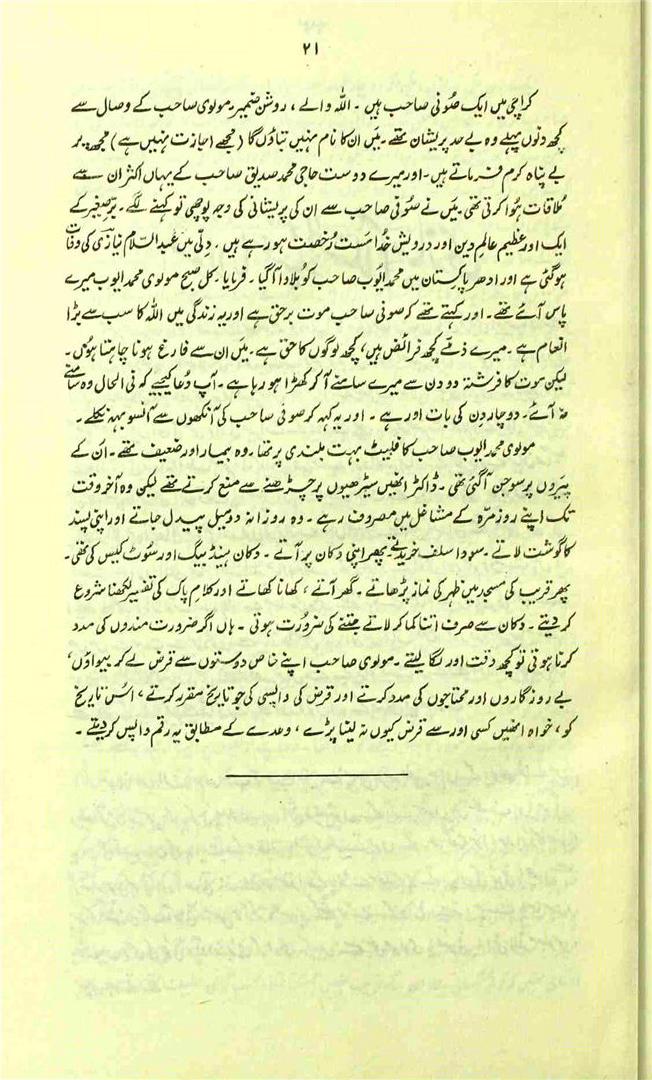 ۲۱
کراچی میں ایک صوفی صاحب ہیں ۔ اللہ والے ، روشن ضمیر ۔ مولوی صاحب کے وصال سے
کچھ دنوں پہلے وہ بے حد پریشان تھے ۔ میں ان کا نام نہیں بتاؤں گا ( مجھے اجازت نہیں ہے ) مجھ پر
بے پناہ کرم فرماتے ہیں ۔ اور میرے دوست حاجی محمد صدیق صاحب کے یہاں اکثر ان سے
ملاقات ہوا کرتی تھی میں نے صوفی صاحب سے ان کی پریشانی کی وجہ پوچھی تو کہنے لگے ۔ برّصغیر کے
ایک اور عظیم عالمِ دین اور درویش خدا مست رخصت ہو رہے ہیں ۔ دلّی میں عبدالسّلام نیازی کی وفات
ہو گئی ہے اور ادھر پاکستان میں محمد ایوب صاحب کو بلاوا آ گیا ۔ فرمایا ۔ کل صبح مولوی محمد ایوب میرے
پاس آئے تھے ۔ اور کہتے تھے کہ صوفی صاحب موت برحق ہے اور یہ زندگی میں اللہ کا سب سے بڑا
انعام ہے ۔ میرے ذمّے کچھ فرائض ہیں ، کچھ لوگوں کا حق ہے ۔ میں ان سے فارغ ہونا چاہتا ہوں ۔
لیکن موت کا فرشتہ دو دن سے میرے سامنے آ کر کھڑا ہو رہا ہے ۔ آپ دعا کیجیے کہ فی الحال وہ سامنے
نہ آئے ۔ دو چار دن کی بات اور ہے ۔ اور یہ کہہ کر صوفی صاحب کی آنکھوں سے آنسو بہہ نکلے ۔
مولوی محمد ایوب صاحب کا فلیٹ بہت بلندی پر تھا ۔ وہ بیمار اور ضعیف تھے ۔ ان کے
پیروں پر سوجن آ گئی تھی ۔ ڈاکٹر انھیں سیڑھیوں پر چڑھنے سے منع کرتے تھے لیکن وہ آخر وقت
تک اپنے روزمرّہ کے مشاغل میں مصروف رہے ۔ وہ روزانہ دو میل پیدل جاتے اور اپنی پسند
کا گوشت لاتے ۔ سودا سلف خریدتے پھر اپنی دکان پر آتے ۔ دکان ہینڈ بیگ اور سوٹ کیس کی تھی ۔
پھر قریب کی مسجد میں ظہر کی نماز پڑھاتے ۔ گھر آتے ، کھانا کھاتے اور کلامِ پاک کی تفسیر لکھنا شروع
کر دیتے ۔ دکان سے صرف اتنا کما کر لاتے جتنے کی ضرورت ہوتی ۔ ہاں اگر ضرورت مندوں کی مدد
کرنا ہوتی تو کچھ وقت اور لگا لیتے ۔ مولوی صاحب اپنے خاص دوستوں سے قرض لے کر بیواؤں ،
بے روزگاروں اور محتاجوں کی مدد کرتے اور قرض کی واپسی کی جو تاریخ مقرر کرتے ، اُس تاریخ
کو ، خواہ انھیں کسی اور سے قرض کیوں نہ لینا پڑے ، وعدے کے مطابق یہ رقم واپس کر دیتے ۔